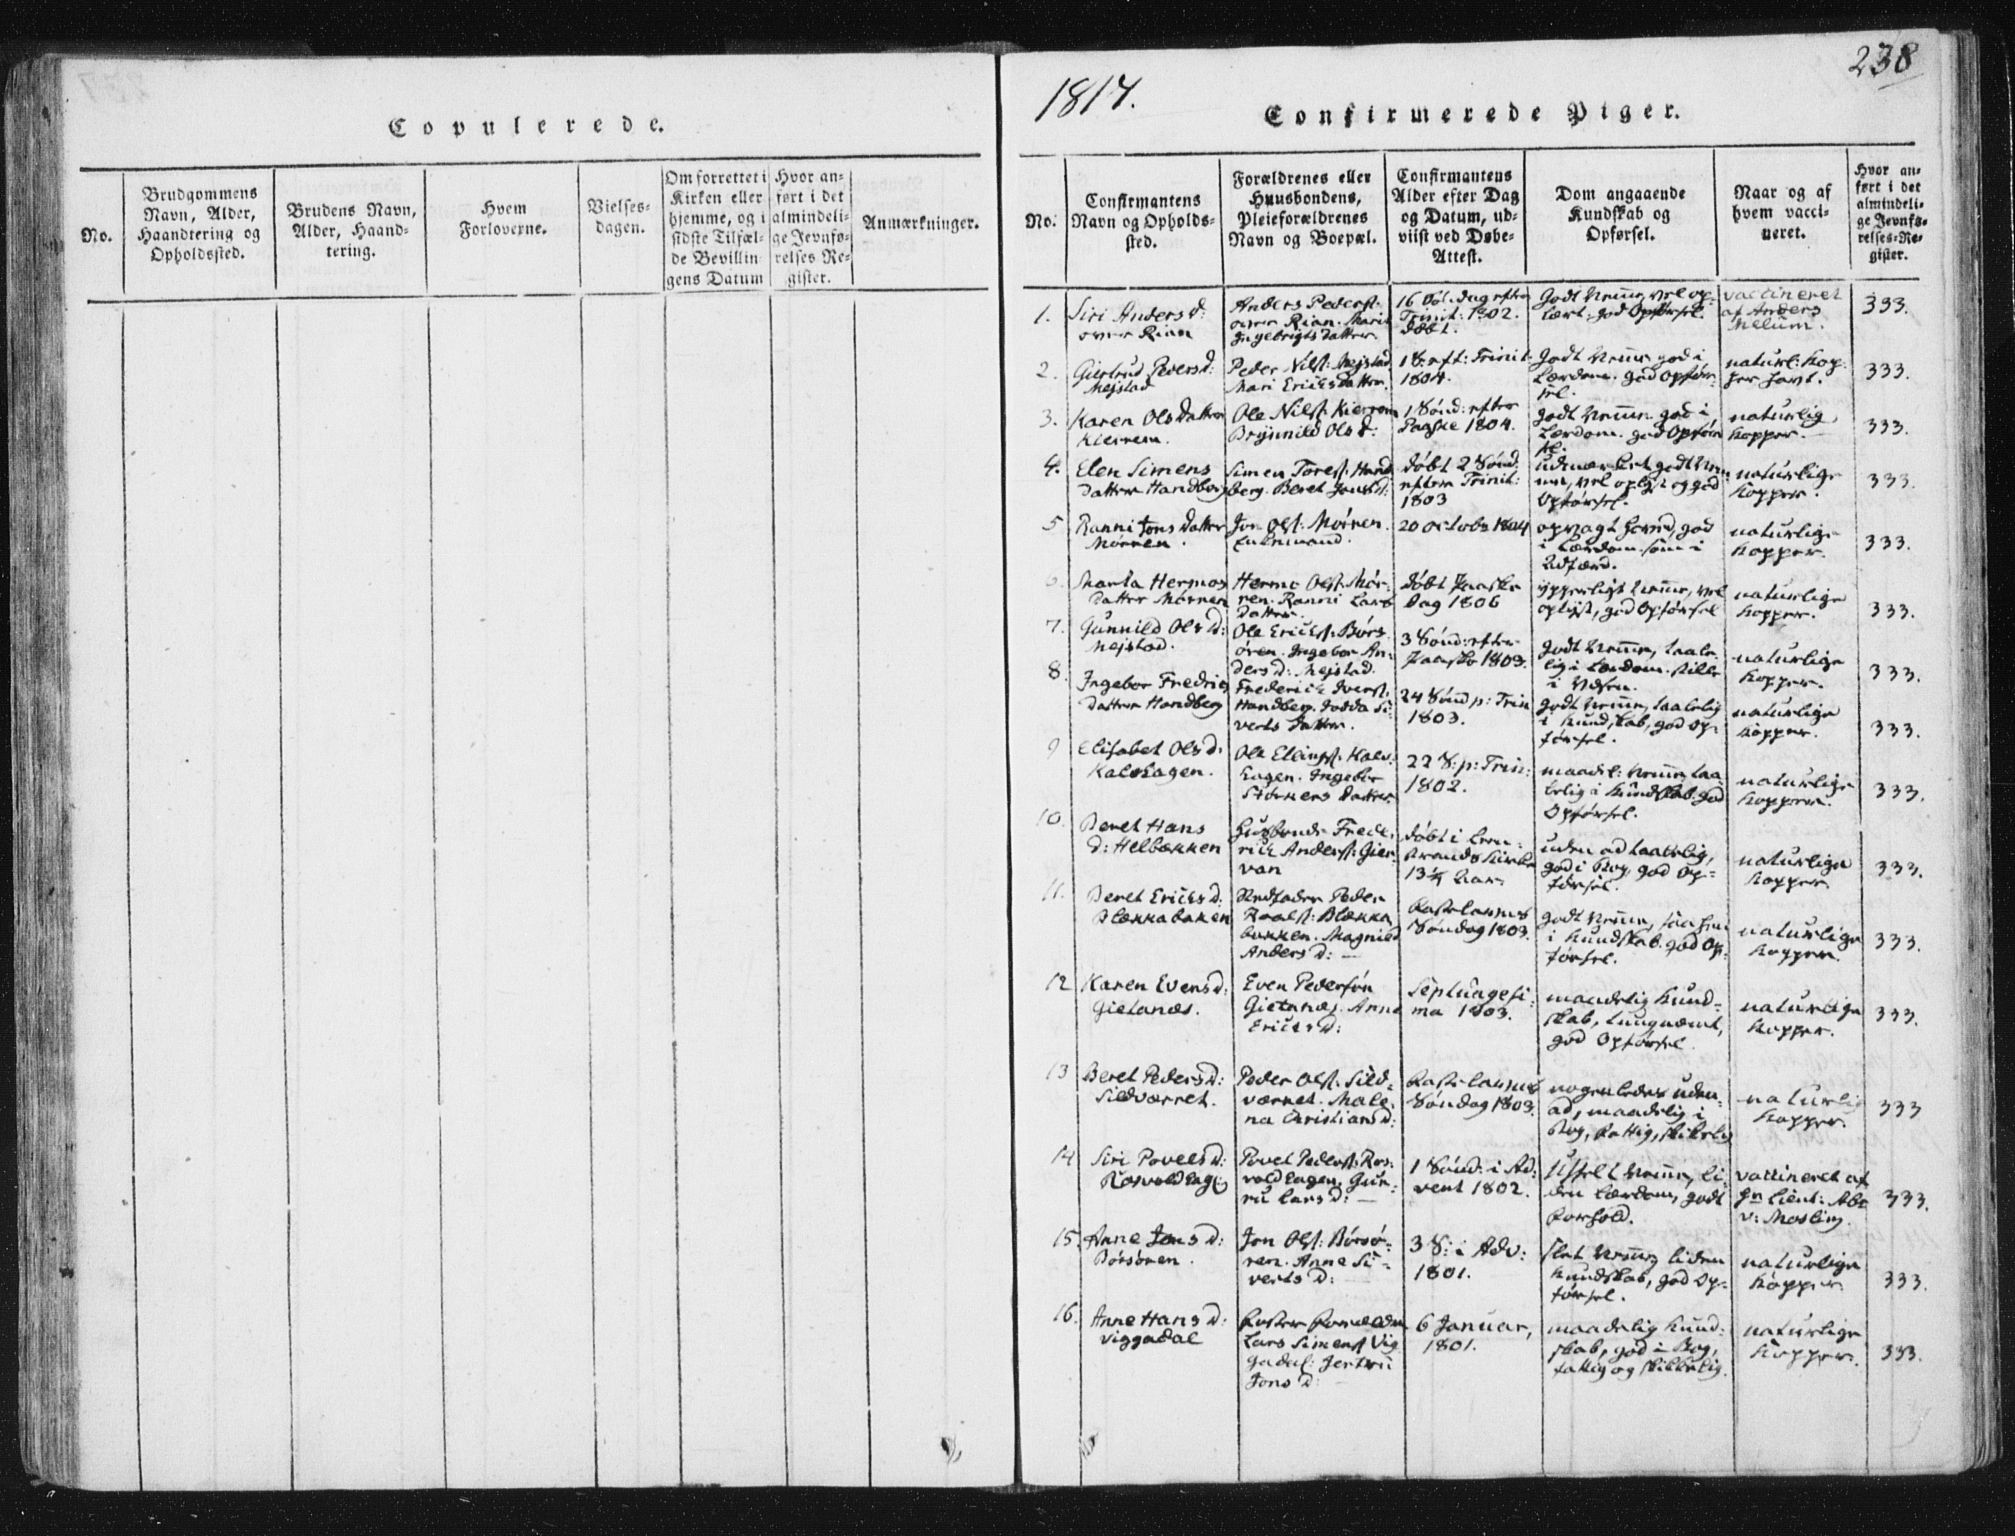 Copulerede.
No.
Brudgommens
Navn, Alder,
Haandtering og
Opholdssted.
Brudens Navn,
Alder, Haand-
tering.
Hvem
Forloverne.
Vielses-
dagen.
Om forrettet i
Kirken eller
hjemme, og i
sidste Tilfæl-
de Bevillin
gens Datum
Hvor an-
ført i det
almindeli-
ge Jevnfø-
relses Re-
gister.
Anmærkninger.
238
1817.
Confirmerede Piger.
No.
Confirmantens
Navn og Opholds-
sted.
Forældrenes eller
Huusbondens,
Pleieforældrenes
Navn og Boepæl.
Confirmantens
Alder efter Dag
og Datum, ud-
viist ved Døbe-
Attest.
Dom angaaende
Kundskab og
Opførsel.
Naar og af
hvem vacci-
neret.
Hvor an-
ført i det
almindeli-
ge Jevnfø-
relses-Re-
gister.
1.
Siri Anders d:
over Rian
Anders Peders:
over Rian. Marit
Ingebrigts datter
16 Søl. dag efter
Trinit: 1802.
døbt.
Godt Nemme, vel op-
lært, god Opførsel.
vaccineret
af Anders
Melum.
333.
2.
Giertrud Peders d:
Mejstad
Peder Nils: Mejstad
Mari Ericks datter.
18. eft: Trinit
1804.
Godt Nemme god i
Lærdom. god Opfør-
sel.
naturl: Kop-
per havt.
333.
3.
Karen Ols datter
Kierrem.
Ole Nils: Kierrem
Brynnild Ols d:
1 Sønd: efter
Paaske 1804.
godt Nemme. god i
Lærdom. god Opfør
sel.
naturlig
Kopper.
333.
4.
Elen Simens
datter Handberg
Simen Tores: Hand
berg. Beret Jons d:
døbt 2 Sønd:
efter Trinit:
1803
udmærket godt Nem
me, vel oplyst og god
Opførsel.
naturlige
Kopper.
333.
5
Ranni Jons datter
Mørren.
Jon Ols: Mørren.
Enkemand.
20 October 1804
opvagt Hoved, god
i Lærdom som i
Udførd.
naturlige
Kopper.
333.
6.
Marta Hermos
datter Mørren
Hermo Ols: Mør-
ren. Ranni Lars
datter.
døbt Paaske
dag 1806
ypperligt Nemme, vel
oplyst, god Opførsel
naturlige
Kopper.
333.
7.
Gunnild Ols d:
Mejstad.
Ole Ericks: Børs
øren. Ingebor An-
ders d: Mejstad.
3 Sønd: efter
Paaske 1803.
godt Nemme, taale
lig i Lærdom. stille
i Væsen.
naturlige
Kopper.
333.
8.
Ingebor Fredrics
datter Handberg
Frederick Ivers:
Handberg. Dodda Si-
verts datter.
24 Sønd p: Trin
1803.
godt Nemme, taalelig
i Kundskab, god Op-
førsel.
naturlige
Kopper.
333.
9
Elisabet Ols d:
Kalvhagen.
Ole Ellings: Kalv-
hagen. Ingebor
Størkers datter
22 S: p: Trin:
1802.
maadel: Nemme, taa
lelig i Kundskab. god
Opførsel.
naturlige
Kopper.
333.
10.
Beret Hans
d: Helbækken
Husbonde Frede-
rick Anders: Gier-
van
døbt i Leen-
strands Kirke
13¼ Aar.
uden ad taalelig,
god i Bog, god Op-
førsel.
naturlige
Kopper.
333.
11.
Beret Ericks d:
Blækkabaken
Stedfader Peder
Roals: Blækka
bakken. Magnild
Anders d:
Fastelavns
Søndag 1803.
godt Nemme,
i Kundskab. god Op-
førsel.
naturlige
Kopper.
333.
12
Karen Evens d:
Gietanæs.
Even Pedersøn
Gietanæs. Anne
Ericks d:
Septuagesi-
ma 1803.
maadelig Kund-
skab, tungnæmt,
god Opførsel
naturlige
Kopper.
333.
13
Beret Peders d:
Sildværret.
Peder Ols: Sild-
værret. Male-
na Christians d:
Fastelavns
Søndag 1803.
nogenledes uden-
ad, maadelig i
Bog, fattig, skikelig
naturlig
Kopper.
333
14
Siri Povels d:
Rosvoldhag:
Povel Peders: Ros-
voldhagen, Gur-
ru Lars d:
1 Sønd: i Ad:
vent 1802.
Usselt Nemme, li-
den Lærdom, godt
Forhold.
vaccineret af
Hn Lieut: Abr
v: Mosling.
333.
15.
Anne Jons d:
Børsøren.
Jon Ols: Børsø-
ren. Anne Si-
verts d:
3 S: i Adv:
1801.
slet Nemme, liden
Kundskab, god Op-
førsel.
naturlige
Kopper
333.
16.
Anne Hans d:
Viggadal
Foster Forældre
Lars Simens: Vig
gadal: Jertru
Jons d:
6 Januar,
1801.
maadelig Kund-
skab, god i Bog,
fattig og skikkelig.
naturlige
Kopper.
333.